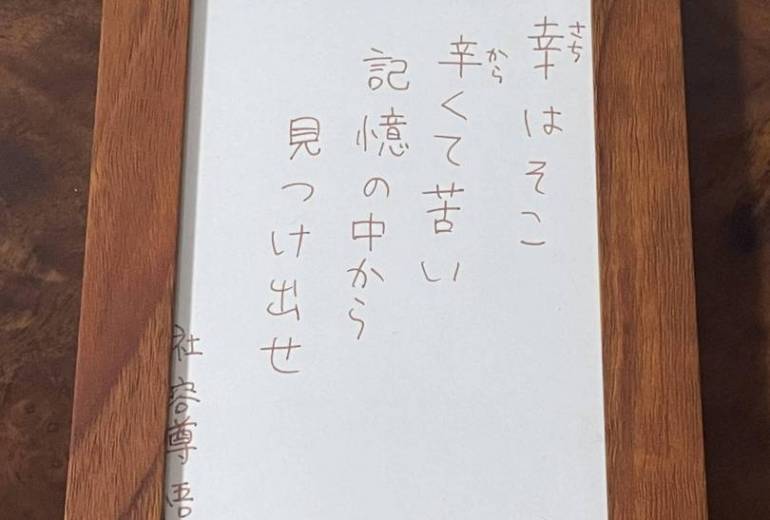 幸はそこ
さち
辛くて苦い
から
記憶の中から
見つけ出せ
社
尊吾